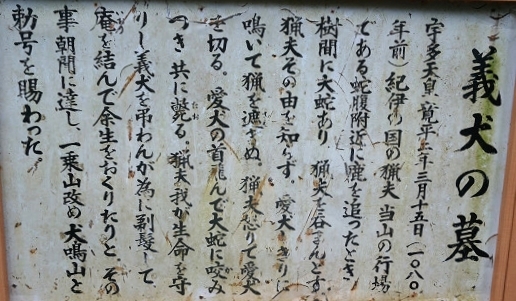 義犬の墓
宇多天皇（寛平二年三月十五日（一〇八〇
年前）紀伊の国の猟夫 当山の行場
である蛇腹附近に鹿を追ったとき
樹間に大蛇あり、猟夫を呑まんとす
猟夫その由を知らず。愛犬しきりに
鳴いて猟を遮ぎぬ、猟夫怒りて愛犬
を切る。愛犬の首飛んで大蛇に咬み
つき共に斃る。猟夫我が生命を守
りし義犬を弔わんが為に剃髪して
庵を結んで余生をおくりたりと、その
事朝聞に達し、一乗山改め犬鳴山と
勅号を賜わった。